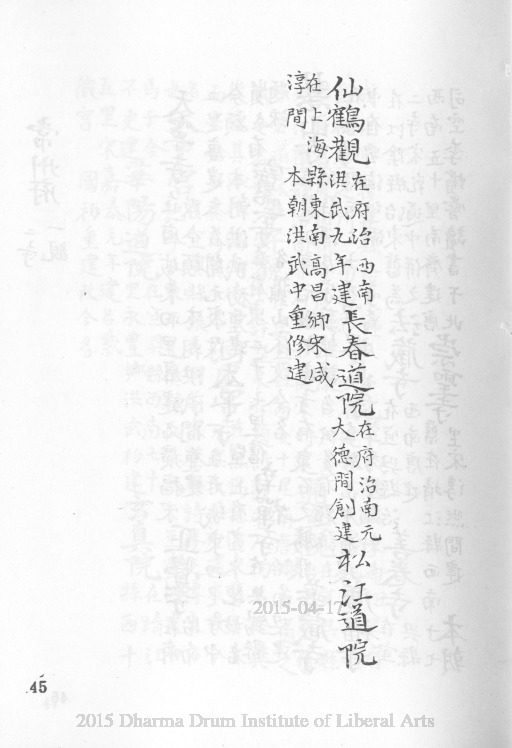 仙鶴觀在府治西南
洪武九年建長春道院在府治南元
大德間創建松江道院
在上海縣東南高昌鄉宋咸
淳間 本朝洪武中重修建
45
2015-04-17
2015 Dharma Drum Institute of Liberal Arts